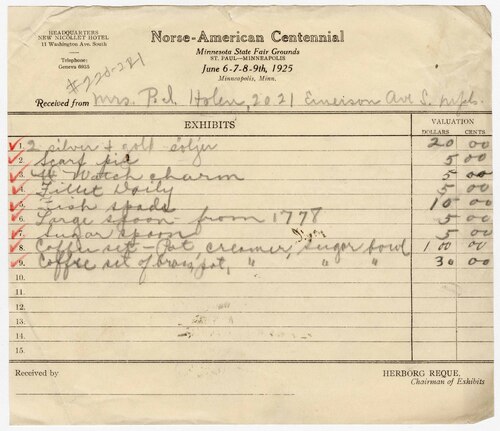 HEADQUARTERS
NEW NICOLLET HOTEL
11 Washington Ave. South
Telephone:
Geneva 6935
Norse-American Centennial
Minnesota State Fair Grounds
ST. PAUL—MINNEAPOLIS
June 6-7-8-9th, 1925
Minneapolis, Minn.
#220-221
Received from Mrs. P. J. Holen, 2021 Emerson Ave S. Mpls.
EXHIBITS VALUATION
DOLLARS CENTS
1. 2 silver & gold 20 00
2. Scarf pin 5 00
3. Watch charm 5 00
4. Fillet Doily 5 00
5. Fish spade 10 00
6. Large spoon from 1778 5 00
7. Sugar spoon 5 00
8. Coffee set - Pot, creamer, sugar bowl 100 00
9. Coffee set of brass, pot, " " " 30 00
10.
11.
12.
13.
14.
15.
Received by
HERBORG REQUE.
Chairman of Exhibits